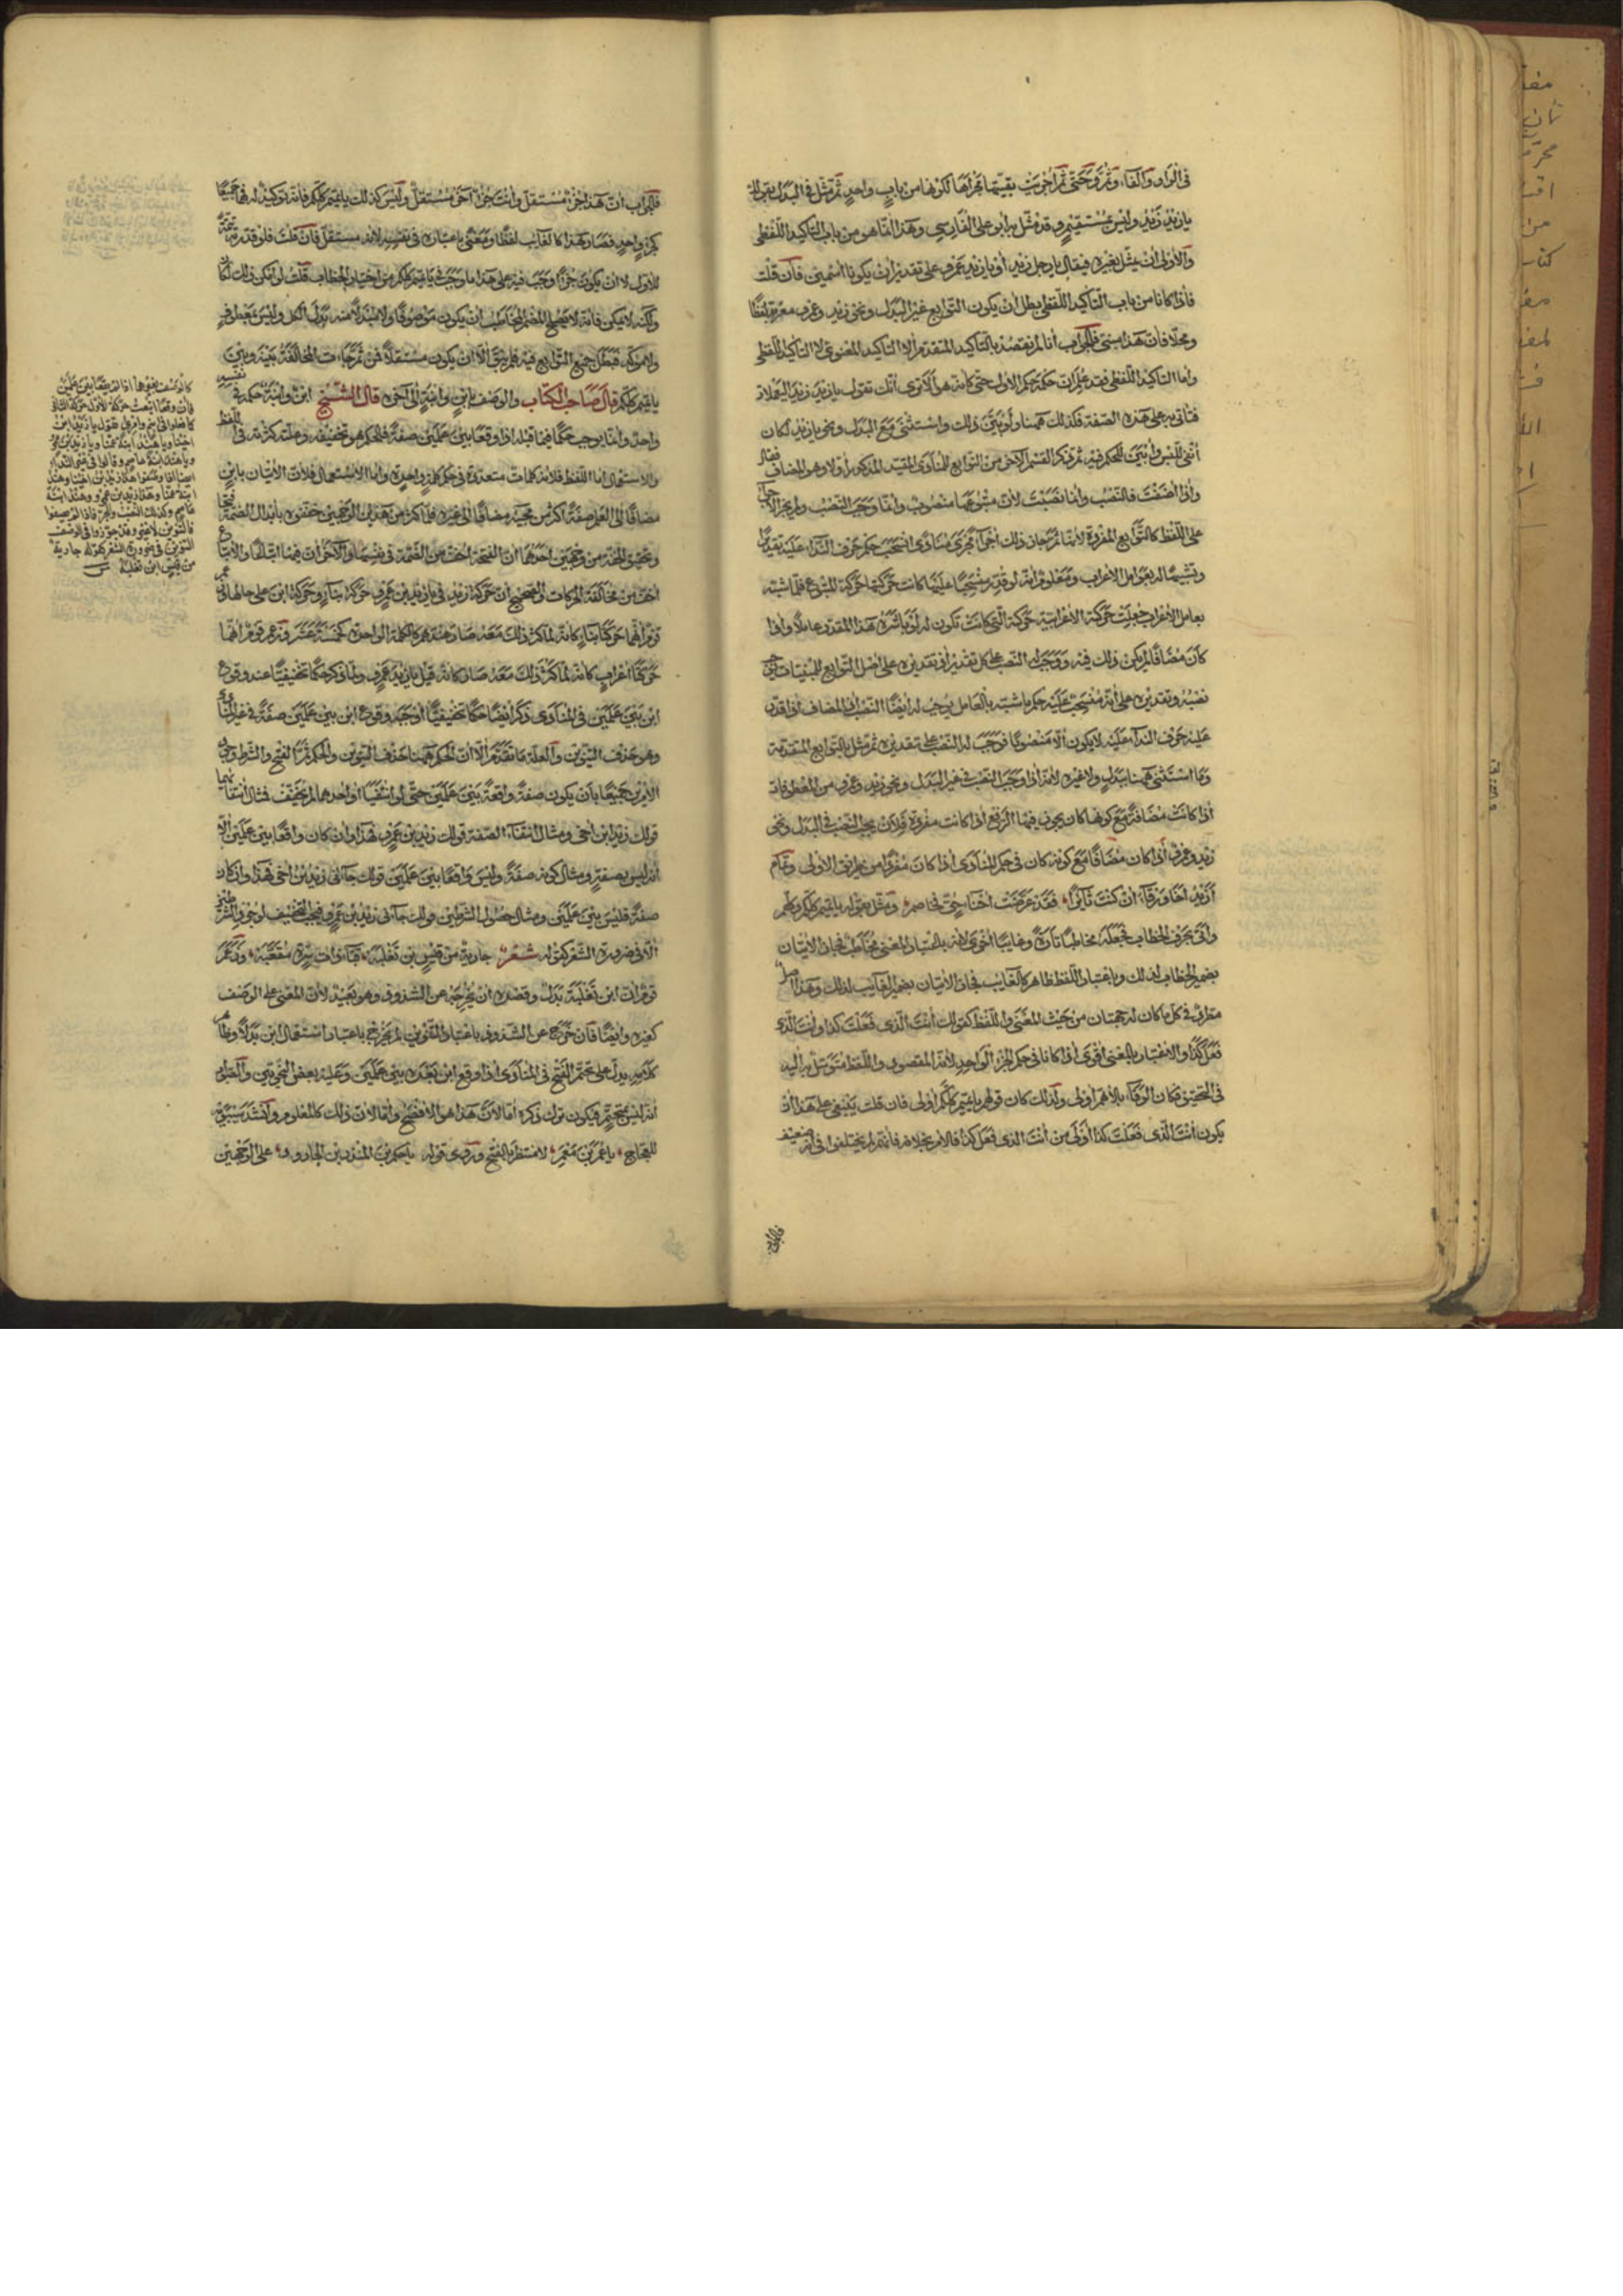 في الواو والفاء وثم وحتى ثم اجريت بقيتها مجراها لكونها من باب واحد ثم مثل في البدل بقولك
يا زيد زيد وليس بمستقيم وقد مثل به ابو علي الفارسي وهذا انما هو من باب التأكيد اللفظي
والاولى ان يمثل بغيره فيقال يا رجل زيد او يا زيد عمرو على تقدير ان يكونا اسمين فان قلت
فاذا كانا من باب التأكيد اللفظي بطل ان يكون التوابع غير البدل ونحو زيد وعمرو معربة لفظا
ومحلا فان هذا مبني فالجواب انا لم نقصد بالتأكيد المتقدم الا التأكيد المعنوي لا التأكيد اللفظي
واما التأكيد اللفظي فقد علم ان حكمه حكم الاول حتى كأنه هو الا ترى انك تقول يا زيد زيد اليعملات
فتأتي به على هذه الصفة فكذلك ههنا ولو بين ذلك واستثنى مع البدل ونحو يا زيد لكان
انفى للبس وابين للحكم فيه ثم ذكر القسم الآخر من التوابع للمنادى المقيد المذكور اولا وهو المضاف فقال
واذا اضفت فالنصب وانما نصبت لان متبوعها منصوب وانما وجب النصب ولم يجز الاجراء
على اللفظ كالتوابع المفردة لانه انما جاز ذلك اجراء مجرى منادى انسحب حكم حرف النداء عليه تقديرا
وتشبيها له بعوامل الاعراب ومعلوم انه لو قدر منسحبا عليها كانت حركتها حركة المتبوع فلما شبه
بعامل الاعراب جعلت حركته الاعرابية حركته التي كانت تكون له لو باشره هذا المقدر عاملا واذا
كان مضافا لم يكن ذلك فيه ووجب له النصب على كل تقدير
نصبه وتقديره على انه منسحب عليه حكم ما شبه بالعامل يوجب له ايضا النصب اذ المضاف اذا قدر
عليه حرف النداء عليه لا يكون الا منصوبا فوجب له النصب على تقديره ثم مثل بالتوابع المتقدمة
وما استثنى ههنا ببدل ولا غيره لانه اذا وجب النصب في غير البدل ونحو زيد وعمرو من المعطوفات
اذا كانت مضافة مع كونها كان يجوز فيها الرفع اذا كانت مفردة فلان يجب النصب في البدل ونحو
زيد وعمرو اذا كان مضافا مع كونه كان في حكم المنادى اذا كان مفردا من طريق الاولى وتمام
ازيد اخا ورقاء ان كنت ثائرا فقد عرضت احناء حق فخاصم ومثل بقوله يا تميم كلكم وكلهم
واتى بحرف الخطاب فجعله مخاطبا تارة وغايبا اخرى لانه باعتبار المعنى مخاطب فجاز الاتيان
بضمير الخطاب لذلك وباعتبار اللفظ ظاهر كالغايب فجاز الاتيان بضمير الغايب لذلك وهذا اصل
مطرد في كل ما كان له جهتان من حيث المعنى واللفظ كقولك انت الذي فعلت كذا وانت الذي
فعل كذا والاعتبار بالمعنى اقوى اذا كانا في حكم الجزء الواحد لانه المقصود واللفظ متوسل به اليه
في التحقيق فكان الوفاء بالاهم اولى ولذلك كان قولهم يا تميم كلكم اولى فان قلت ينبغي على هذا ان
يكون انت الذي فعلت كذا اولى من انت الذي فعل كذا فالامر بخلافه فانهم لم يختلفوا في انه ضعيف
فالجواب
فالجواب ان هذا جزء مستقل وانت جزء آخر مستقل وليس كذلك يا تميم كلكم فانه توكيد له فهما جميعا
كجزء واحد فصار هذا كالغايب لفظا ومعنى باعتباره في نفسه لانه مستقل فان قلت فلو قدر تتمة
للاول لا ان يكون جزءا وجب فيه على هذا ما وجب في يا تميم كلكم من اختيار الخطاب قلت لو امكن ذلك لكان
ولكنه لا يمكن فانه لا يصح للمضمر المخاطب ان يكون موصوفا ولا مبدلا منه بدل الكل وليس معطوف
ولا مؤكد فبطل جميع التوابع فيه فلم يبق الا ان يكون مستقلا فمن ثم جاءت المخالفة بينه وبين
يا تميم كلكم قال صاحب الكتاب والوصف بابن وابنة الى آخره قال الشيخ ابن وابنة حكمه في نفسه
واحد وانما يوجب حكما فيما قبله اذا وقعا بين علمين صفة فالحكم هو تخفيفه وعلته كثرته في اللفظ
والاستعمال اما اللفظ فلانه كلمات متعددة في حكم كلمة واحدة واما الاستعمال فلان الاتيان بابن
مضافا الى العلم صفة اكثر من مجيئه مضافا الى غيره فلما كثر من هذين الوجهين خففوه بابدال الضمة فتحا
وتحقيق الخفة من وجهين احدهما ان الفتحة اخف من الضمة في نفسها والآخر ان فيها اتباعا والاتباع
اخف من مخالفة الحركات والصحيح ان حركة زيد في يا زيد بن عمرو حركة بناء وحركة ابن على حالها وزعم
قوم انهما حركتا بناء كانه لما كثر ذلك معه صار معه كالكلمة الواحدة كخمسة عشر وزعم قوم انهما
حركتا اعراب كانه لما كثر ذلك معه صار كانه قيل يا زيد عمرو ولما ذكر حكما تخفيفيا عند وقوع
ابن بين علمين في المنادى ذكر ايضا حكما تخفيفيا اوجبه وقوع ابن بين علمين صفة في غير المنادى
وهو حذف التنوين والعلة ما تقدم الا ان الحكم ههنا حذف التنوين والحكم ثم الفتح والشرط في
الامرين جميعا بان يكون صفة واقعة بين علمين حتى لو انتفيا او احدهما لم يخفف فمثال انتفائهما
قولك زيد ابن اخي ومثال انتفاء الصفة قولك زيد ابن عمرو فهذا وان كان واقعا بين علمين الا
انه ليس بصفة ومثال كونه صفة وليس واقعا بين علمين قولك جاءني زيد ابن اخي فهذا وان كان
صفة فليس بين علمين ومثال حصول الشرطين قولك جاءني زيد بن عمرو فيجب التخفيف لوجود الشرطين
الا في ضرورة الشعر كقوله شعر جارية من قيس بن ثعلبة قباء ذات سرة مقعبة وزعم
قوم ان ابن ثعلبة بدل وقصده ان يخرجه عن الشذوذ وهو بعيد لان المعنى على الوصف
كغيره وايضا فان خرج عن الشذوذ باعتبار التنوين لم يخرج باعتبار استعمال ابن بدلا وظاهر
كلامه يدل على تحتم الفتح في المنادى اذا وقع ابن بعده بين علمين وعليه بعض النحويين
انه ليس بمتحتم فيكون ترك ذكره اما لان هذا هو الافصح واما لان ذلك كالمعلوم وانشد سيبويه
للعجاج يا عمر بن معمر لا منتظر بالفتح وروى قوله يا حكم بن المنذر بن الجارود على الوجهين